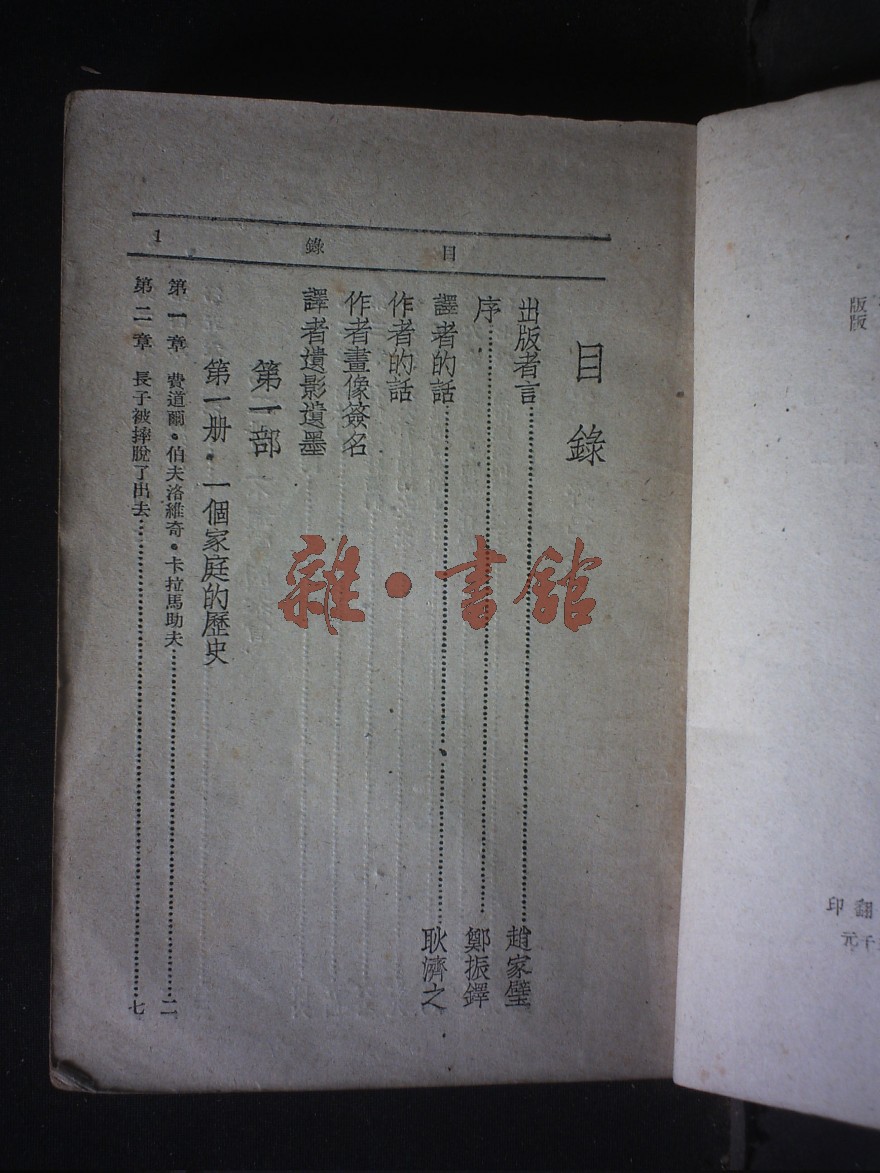 目錄
目錄 1
出版者言……趙家璧
序……鄭振鐸
譯者的話……耿濟之
作者的話
作者畫像簽名
譯者遺影遺墨
第一部
第一册・一個家庭的歷史
第一章 費道爾・伯夫洛維奇・卡拉馬助夫……二
第二章 長子被摔脫了出去……七
版版
翻印
千元
雜・書館